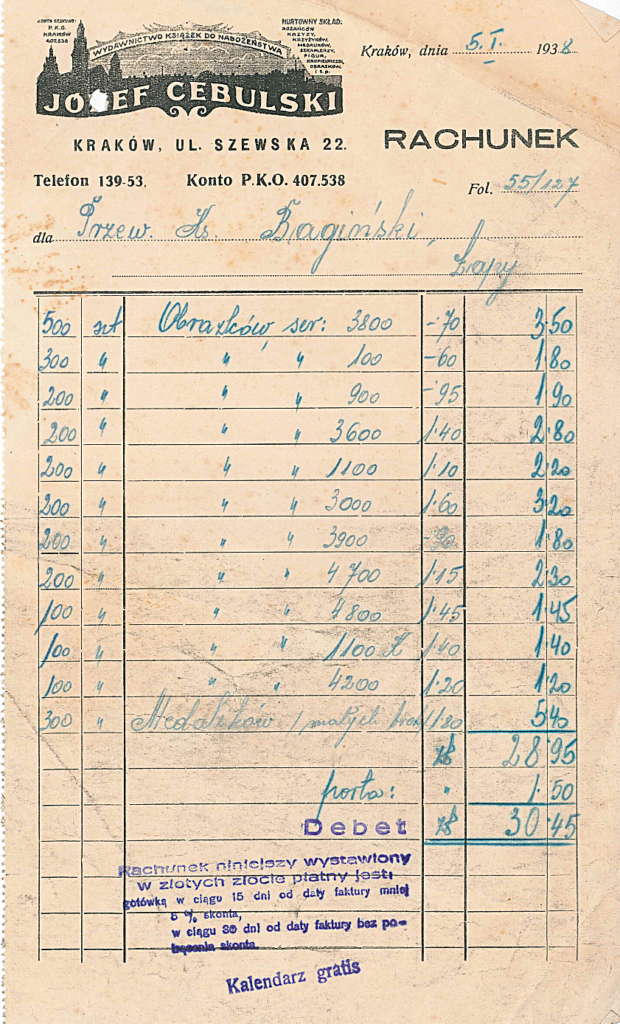 KONTO CZEKOWE:
P. K. O.
KRAKÓW
407.538
WYDAWNICTWO KSIĄŻEK DO NABOŻEŃSTWA
HURTOWNY SKŁAD:
RÓŻAŃCÓW
KRZYŻY,
KRZYŻYKÓW,
MEDALIKÓW,
SZKAPLERZY,
FIGUR,
KROPIELNICZEK,
OBRAZKÓW
i t. p.
JÓZEF CEBULSKI
KRAKÓW, UL. SZEWSKA 22.
Telefon 139-53. Konto P.K.O. 407.538
Kraków, dnia 5. I. 1938
RACHUNEK
Fol. 55/127
dla Przew. Ks. Bagiński,
Łapy
500 szt Obrazków ser: 3800 -·70 3·50
300 " " " 100 -·60 1·80
200 " " " 900 -·95 1·90
200 " " " 3600 1·40 2·80
200 " " " 1100 1·10 2·20
200 " " " 3000 1·60 3·20
200 " " " 3900 -·90 1·80
200 " " " 4700 1·15 2·30
100 " " " 4800 1·45 1·45
100 " " " 1100 1·40 1·40
100 " " " 4200 1·20 1·20
300 " Medalików małych 5·40
zł 28·95
porto: " 1·50
Debet zł 30·45
Rachunek niniejszy wystawiony
w złotych złocie płatny jest:
gotówką w ciągu 15 dni od daty faktury mniej
5 % skonta,
w ciągu 30 dni od daty faktury bez po-
trącenia skonta.
Kalendarz gratis